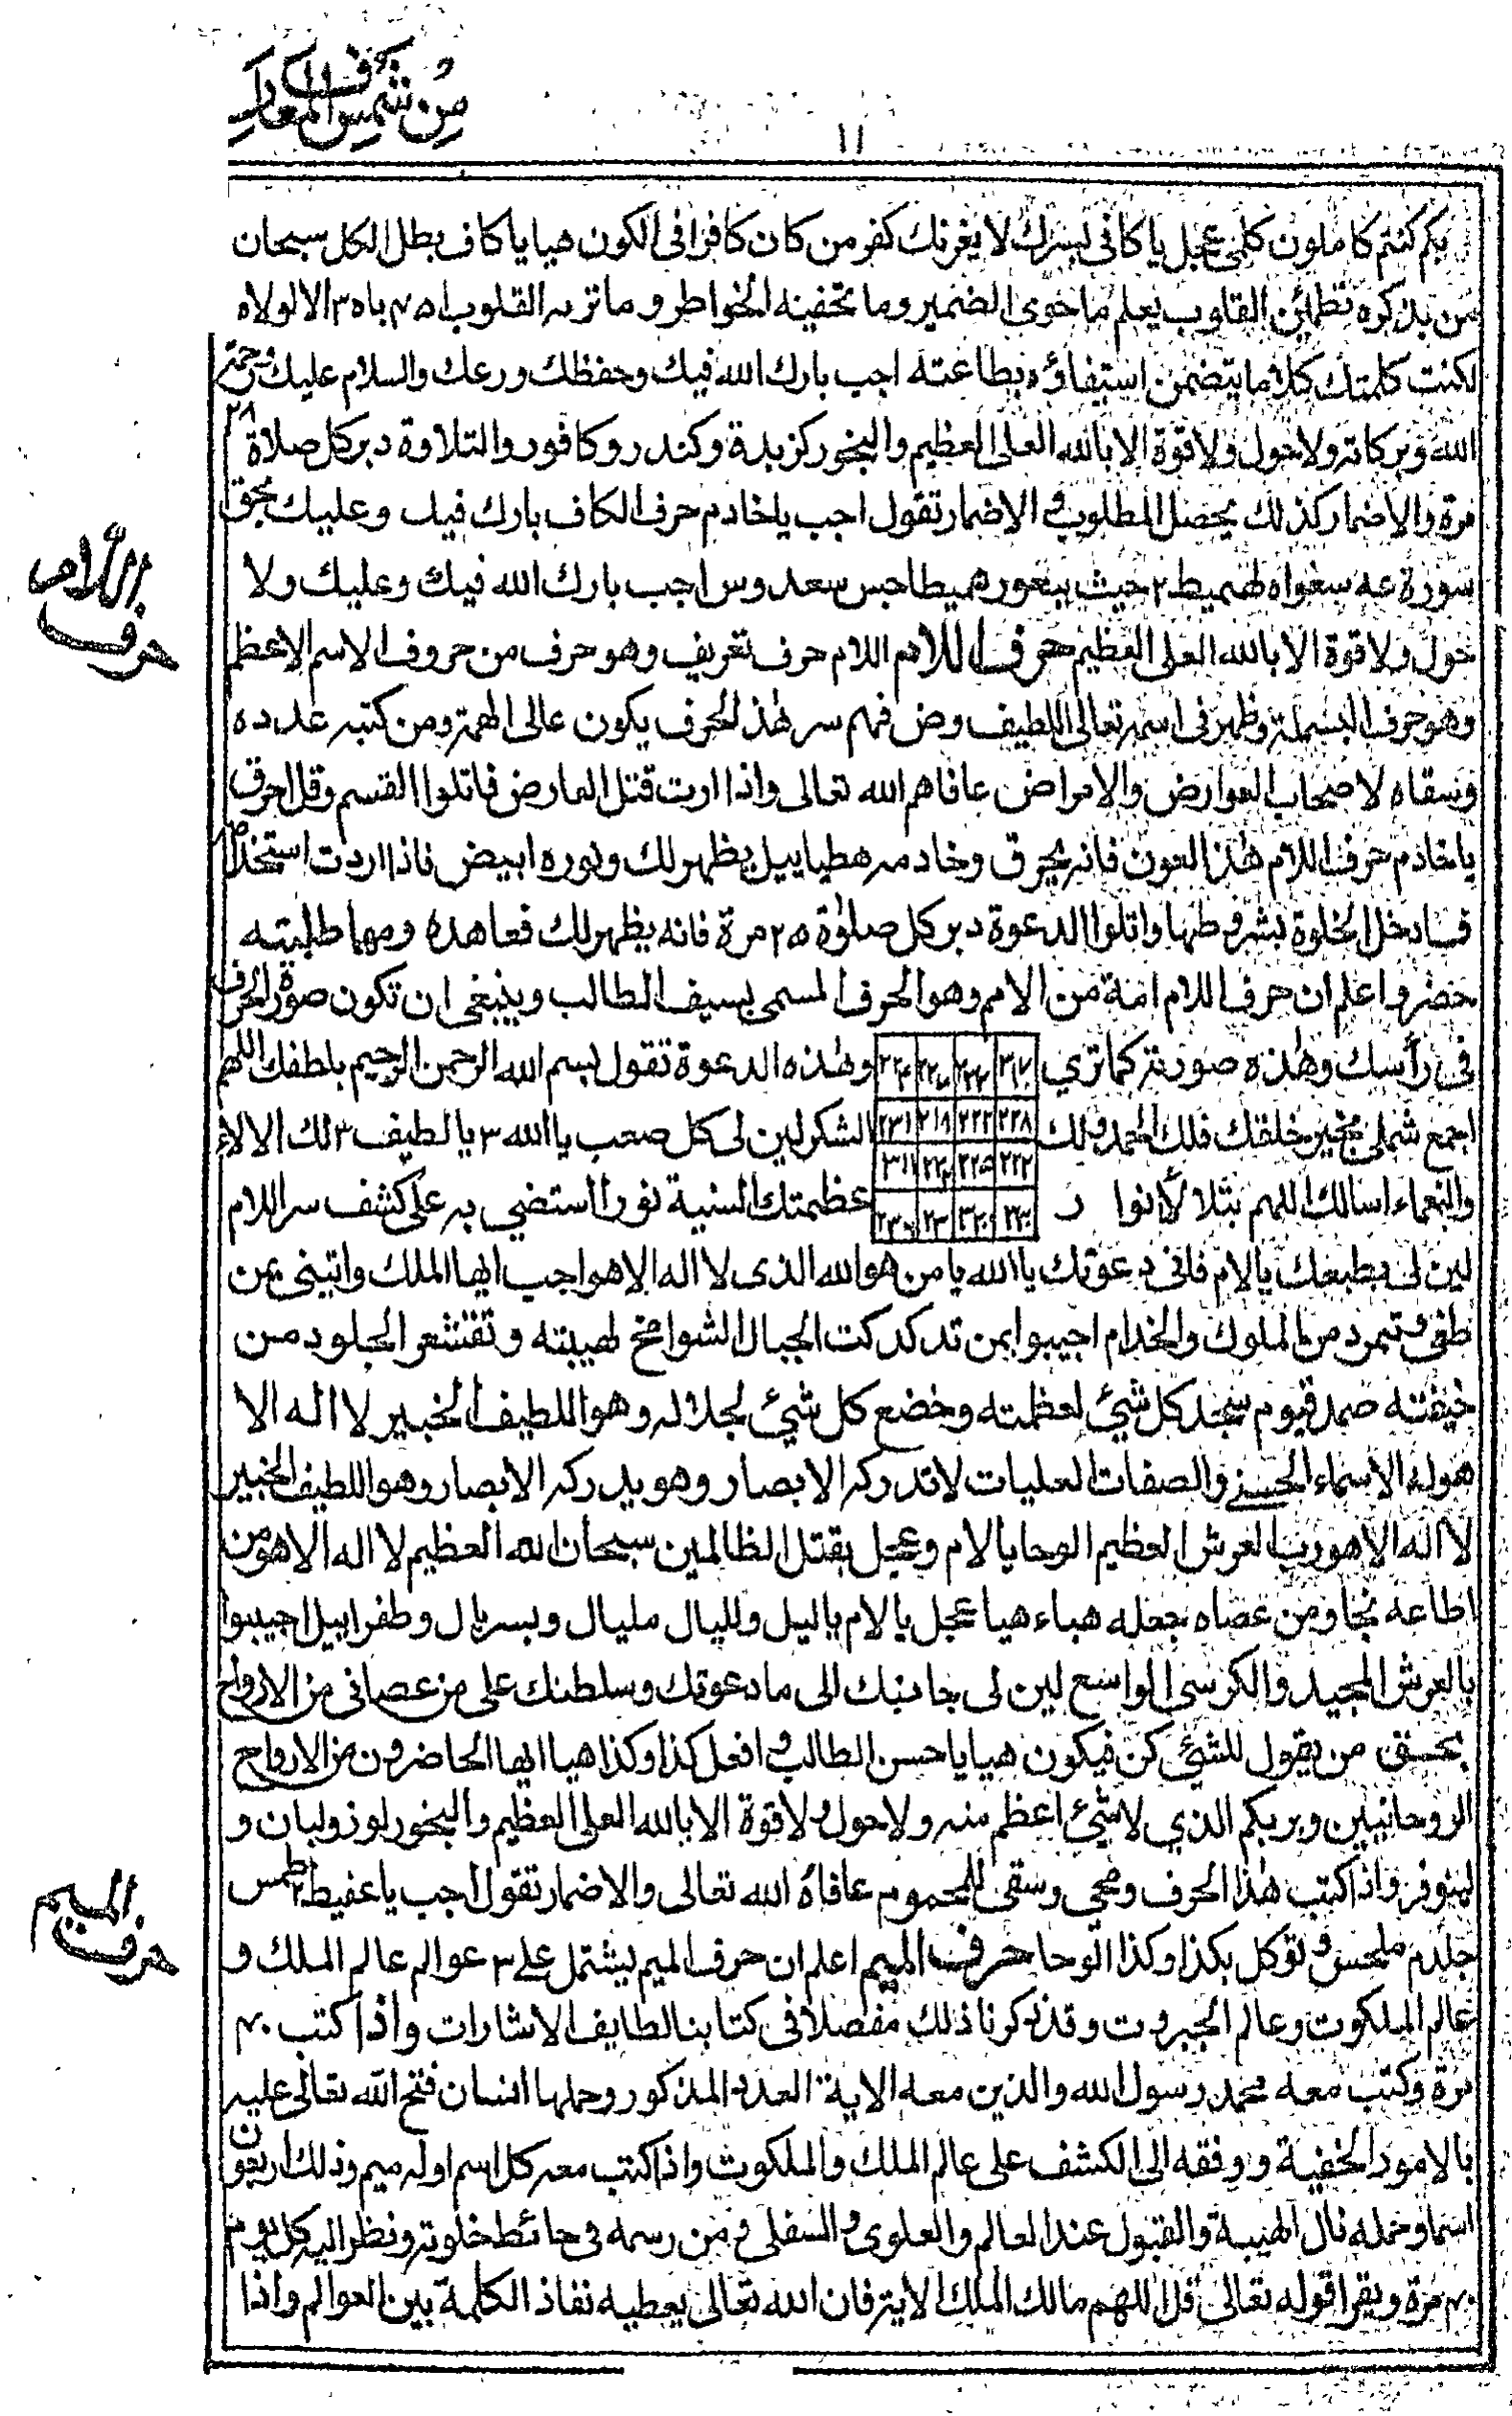 من شمس المعارف
١١
بكم كنتم كاملون كلى عجل يا كافى بسرك لا يغرنك كفر من كان كافرا فى الكون هيا يا كاف بطل الكل سبحان
من بذكره تطمئن القلوب يعلم ما حوى الضمير وما تخفيه الخواطر وما تر به القلوب الا لولاه
لكنت كلمتك كلاما يتضمن استيفاؤه بطاعته اجب بارك الله فيك وحفظك ورعك والسلام عليك ورحمة
الله وبركاته ولا حول ولا قوة الا بالله العلى العظيم والبخور كزبدة وكندر وكافور والتلاوة دبر كل صلاة ٢٨
مرة والاضمار كذلك يحصل المطلوب و الاضمار تقول اجب يا خادم حرف الكاف بارك فيك وعليك بحق
سورة عه سعواه طهميط ٢ حيث بيعوره هميطا حبس سعد وس اجب بارك الله فيك وعليك ولا
حول ولا قوة الا بالله العلى العظيم حرف اللام اللام حرف تعريف وهو حرف من حروف الاسم الاعظم
حرف اللام
وهو حرف البسملة وظهر فى اسمه تعالى اللطيف ومن فهم سر هذ الحرف يكون عالى الهمة ومن كتبه عدده
وسقاه لاصحاب العوارض والامراض عافاهم الله تعالى واذا ارت قتل العارض فاتلوا القسم وقل احرق
يا خادم حرف اللام هذا العون فانه يحرق وخادمه هطياييل يظهر لك ونوره ابيض فاذا اردت استخدامه
فادخل الخلوة بشروطها واتلوا الدعوة دبر كل صلوة ٢٥ مرة فانه يظهر لك فعاهده ومهما طلبته
حضر واعلم ان حرف اللام امة من الامم وهو الحرف المسمى بسيف الطالب وينبغى ان تكون صورة الحرف
فى رأسك وهذه صورته كما ترى وهذه الدعوة تقول بسم الله الرحمن الرحيم بلطفك اللهم
اجمع شملى بخير خلقك فلك الحمد ولك الشكر لين لى كل صعب يا الله ٣ يا لطيف ٣ لك الالاء
٢٢٨ ٢٢٢ ٢١٨ ٢٣١
والنعماء اسالك اللهم بتلا لأ انوا ر عظمتك السنية نورا استضي به على كشف سر اللام
لين لى بطبعك يا لام فانى دعوتك يا الله يا من هو الله الذى لا اله الا هو اجب ايها الملك واتينى بمن
طغى وتمرد من الملوك والخدام اجيبوا بمن تدكدكت الجبال الشوامخ لهيبته وتقشعر الجلود من
خيفته صمد قيوم سجد كل شئ لعظمته وخضع كل شئ لجلاله وهو اللطيف الخبير لا اله الا
هو له الاسماء الحسنى والصفات العليات لا تدركه الابصار وهو يدركه الابصار وهو اللطيف الخبير
لا اله الا هو رب العرش العظيم الوحا يا لام وعجل بقتل الظالمين سبحان الله العظيم لا اله الا هو من
اطاعه نجا ومن عصاه جعله هباء هيا عجل يا لام يا ليل ولليال مليال وبسريال وطفراييل اجيبوا
بالعرش المجيد والكرسى الواسع لين لى جانبك الى ما دعوتك وسلطنك على من عصانى من الارواح
بحق من يقول للشئ كن فيكون هيا يا حسن الطالب و افعل كذا وكذا هيا ايها الحاضرون من الارواح
الروحانيين وبربكم الذي لا شئ اعظم منه ولا حول ولا قوة الا بالله العلى العظيم والبخور لوز ولبان و
لينوفر واذا كتب هذا الحرف ومحى وسقى للمحموم عافاه الله تعالى والاضمار تقول اجب يا عفيط ٢ طمس
جلدم ملحس و توكل بكذا وكذا الوحا حرف الميم اعلم ان حرف الميم يشتمل على ٣ عوالم عالم الملك و
حرف الميم
عالم الملكوت وعالم الجبروت وقد ذكرنا ذلك مفصلا فى كتابنا لطايف الاشارات واذا كتب ٤٠
مرة وكتب معه محمد رسول الله والذين معه الاية العدد المذكور وحملها انسان فتح الله تعالى عليه
بالامور الخفية ووفقه الى الكشف على عالم الملك والملكوت واذا كتب معه كل اسم اوله ميم وذلك اربعون
اسما وحمله نال الهيبة والقبول عند العالم والعلوى و السفلى و من رسمه فى حائط خلوته ونظر اليه كل يوم
٤٠ مرة ويقرا قوله تعالى قل اللهم مالك الملك الاية فان الله تعالى يعطيه نفاذ الكلمة بين العوالم واذا